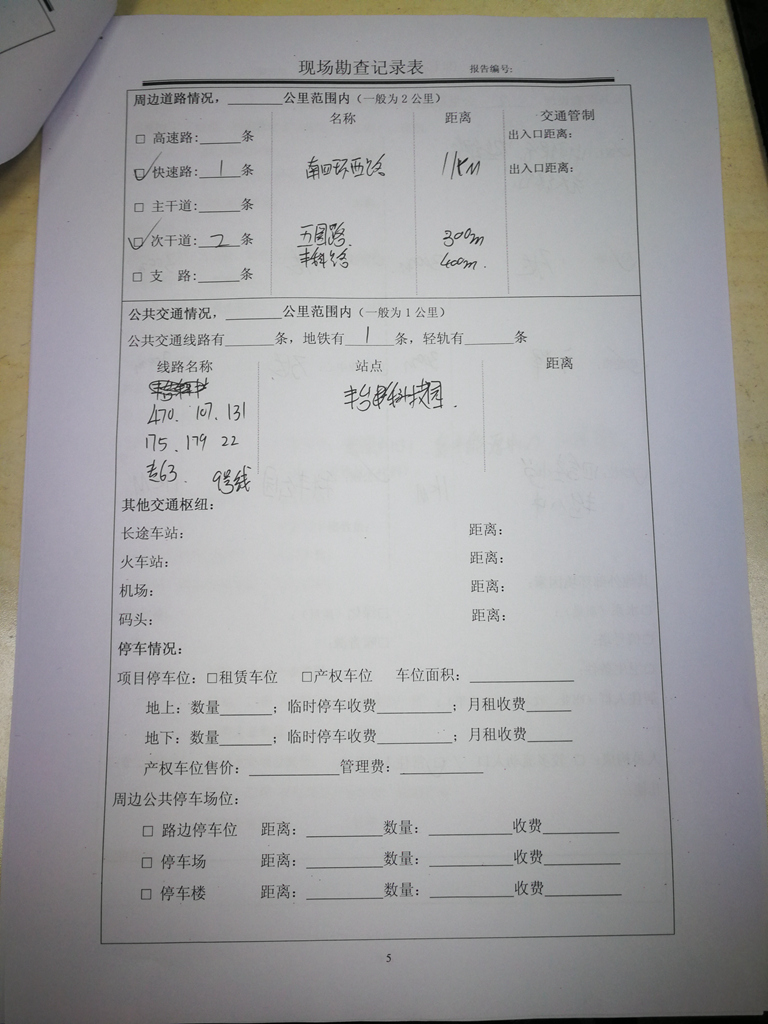 现场勘查记录表 报告编号:
周边道路情况，______公里范围内（一般为2公里）
名称 距离 交通管制
□ 高速路:_____条 出入口距离:
☑ 快速路: 1 条 南四环西路 出入口距离:
□ 主干道:_____条
☑ 次干道: 2 条 五圈路. 300m
丰科路 400m.
□ 支 路:_____条
公共交通情况，_______公里范围内（一般为1公里）
公共交通线路有______条，地铁有 1 条，轻轨有______条
线路名称 站点 距离
470. 107. 131 丰台科技园.
175. 179 22
专63. 9号线
其他交通枢纽:
长途车站: 距离:
火车站: 距离:
机场: 距离:
码头: 距离:
停车情况:
项目停车位: □租赁车位 □产权车位 车位面积: ______________
地上: 数量_______; 临时停车收费__________; 月租收费______
地下: 数量_______; 临时停车收费__________; 月租收费______
产权车位售价: ____________管理费: ___________
周边公共停车场位:
□ 路边停车位 距离: __________数量: ___________收费__________
□ 停车场 距离: __________数量: ___________收费__________
□ 停车楼 距离: __________数量: ___________收费__________
5